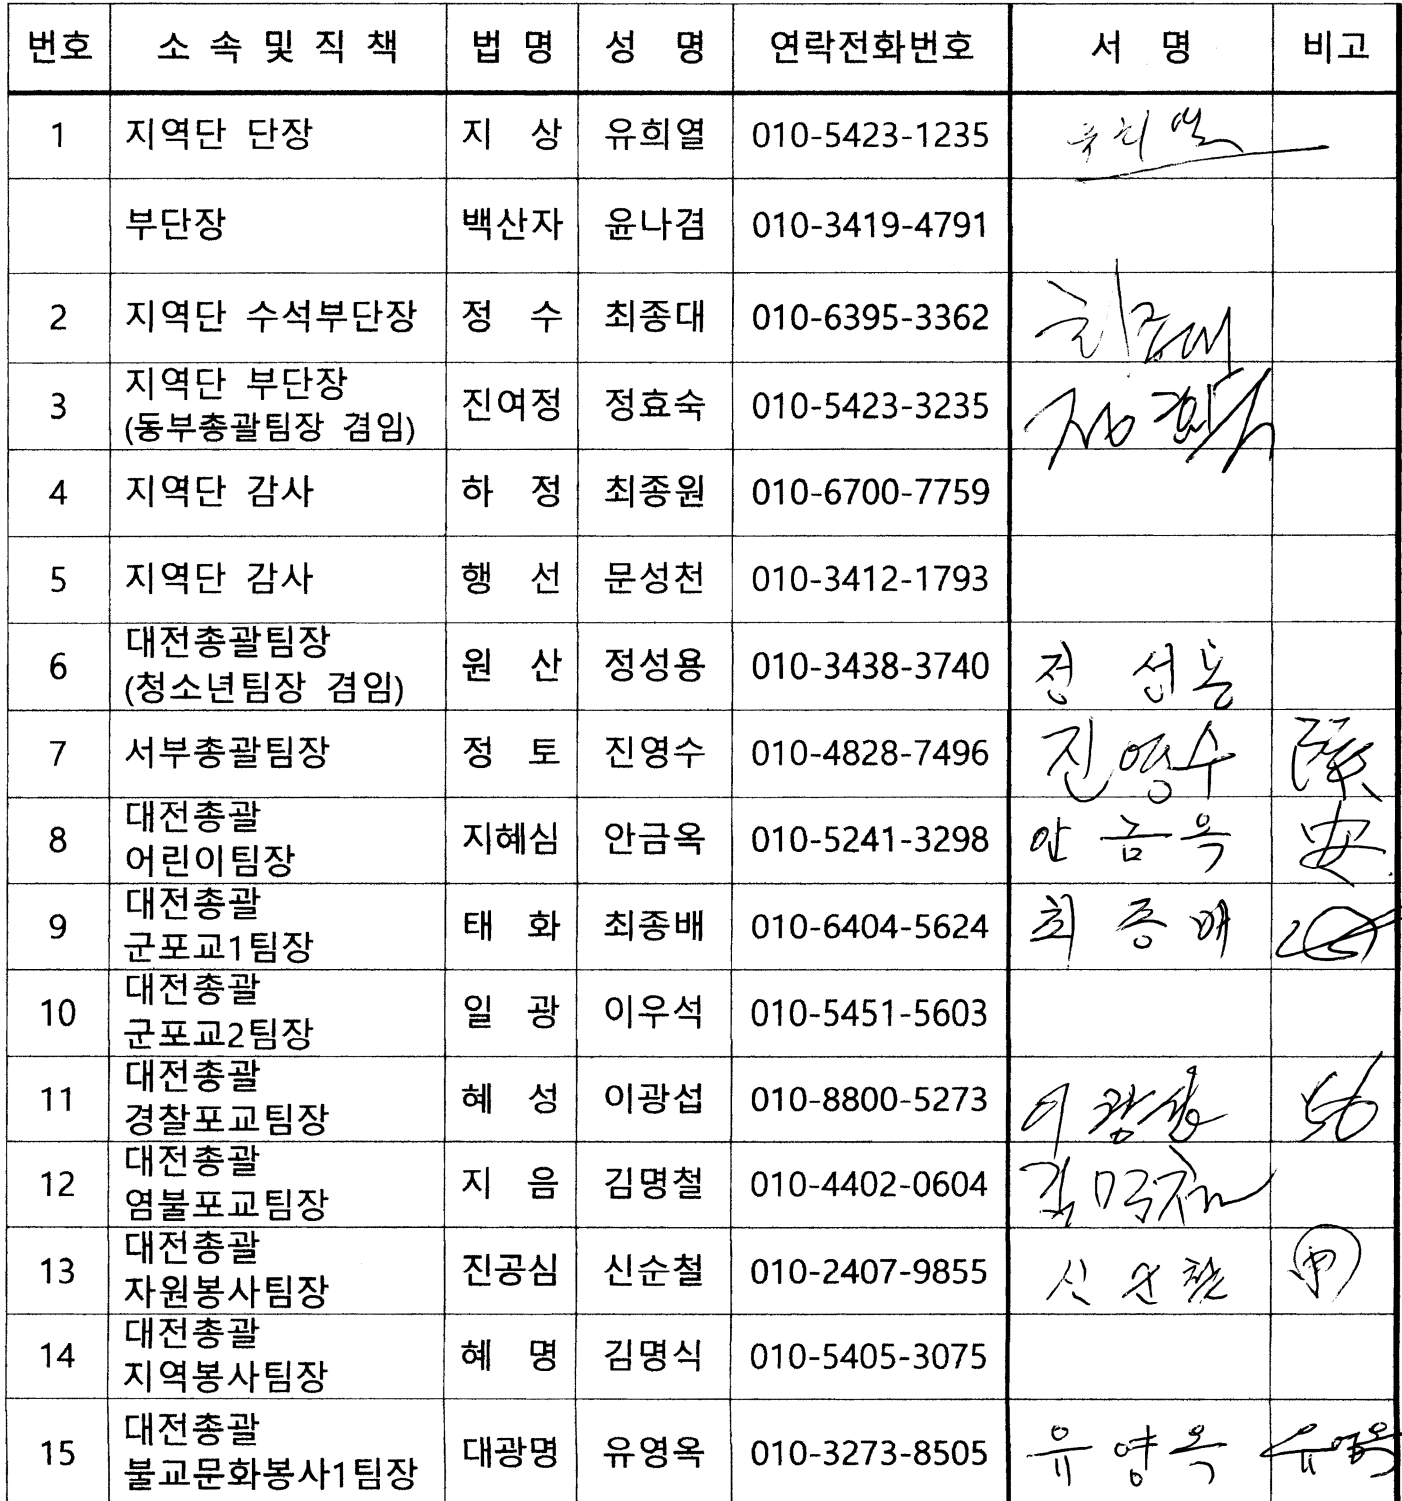 번호 소 속 및 직 책 법 명 성 명 연락전화번호 서 명 비고
1 지역단 단장 지 상 유희열 010-5423-1235 유희열
부단장 백산자 윤나겸 010-3419-4791
2 지역단 수석부단장 정 수 최종대 010-6395-3362 최종대
3 지역단 부단장 (동부총괄팀장 겸임) 진여정 정효숙 010-5423-3235 정효숙
4 지역단 감사 하 정 최종원 010-6700-7759
5 지역단 감사 행 선 문성천 010-3412-1793
6 대전총괄팀장 (청소년팀장 겸임) 원 산 정성용 010-3438-3740 정 성용
7 서부총괄팀장 정 토 진영수 010-4828-7496 진영수 陳
8 대전총괄 어린이팀장 지혜심 안금옥 010-5241-3298 안 금 옥 安
9 대전총괄 군포교1팀장 태 화 최종배 010-6404-5624 최 종 배
10 대전총괄 군포교2팀장 일 광 이우석 010-5451-5603
11 대전총괄 경찰포교팀장 혜 성 이광섭 010-8800-5273 이 광섭
12 대전총괄 염불포교팀장 지 음 김명철 010-4402-0604 김명철
13 대전총괄 자원봉사팀장 진공심 신순철 010-2407-9855 신 순 철 申
14 대전총괄 지역봉사팀장 혜 명 김명식 010-5405-3075
15 대전총괄 불교문화봉사1팀장 대광명 유영옥 010-3273-8505 유 영 옥 유영옥